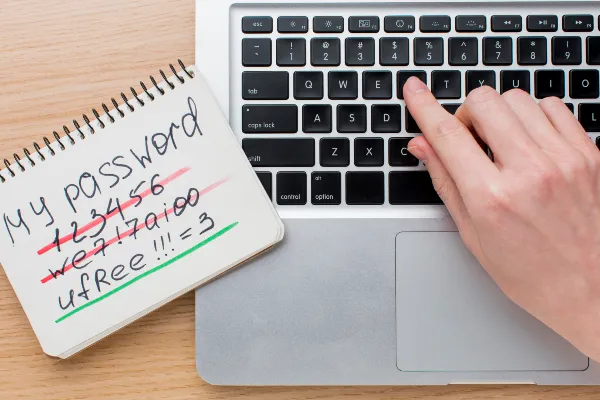 My password
123456
we7!7aioo
ufRee!!!=3
esc
~ ! @ # $ % ^ & * (
1 2 3 4 5 6 7 8 9
tab Q W E T Y U I O
caps lock A S D
shift Z X C
alt
control option